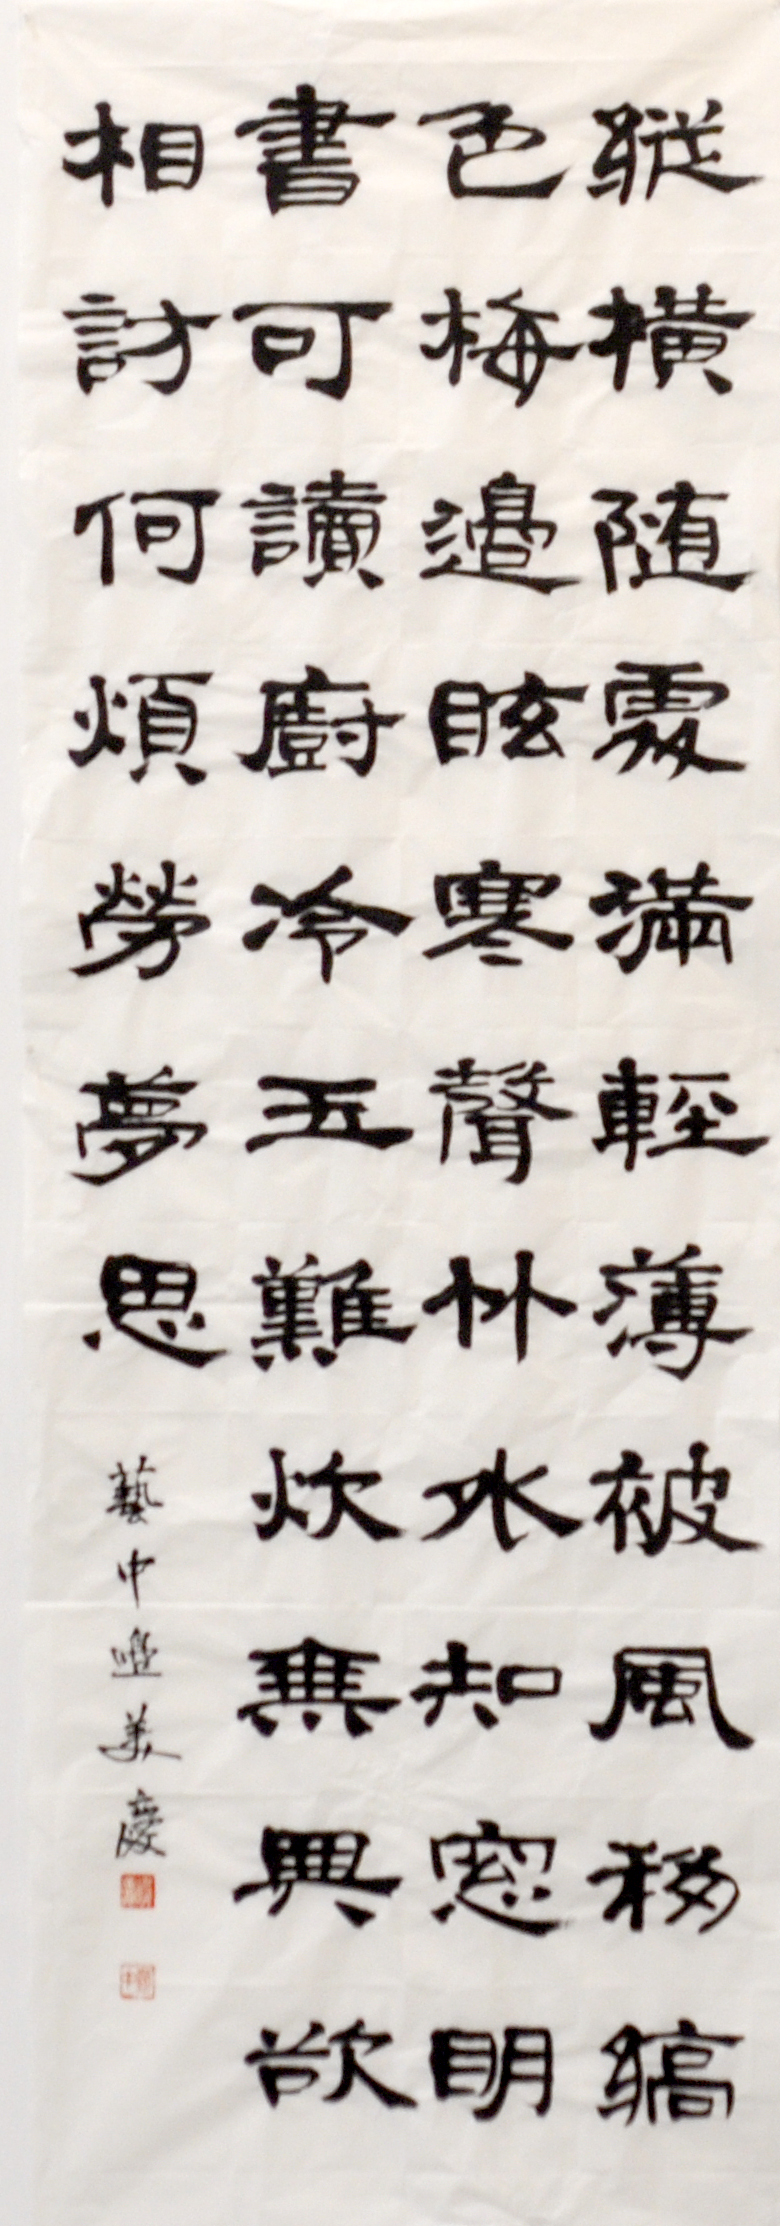 縦横随處満輕薄被風移縞
色梅邊眩寒聲竹外知窓明
書可讀廚冷五難炊無興欲
相訪何煩勞夢思
藝中美慶